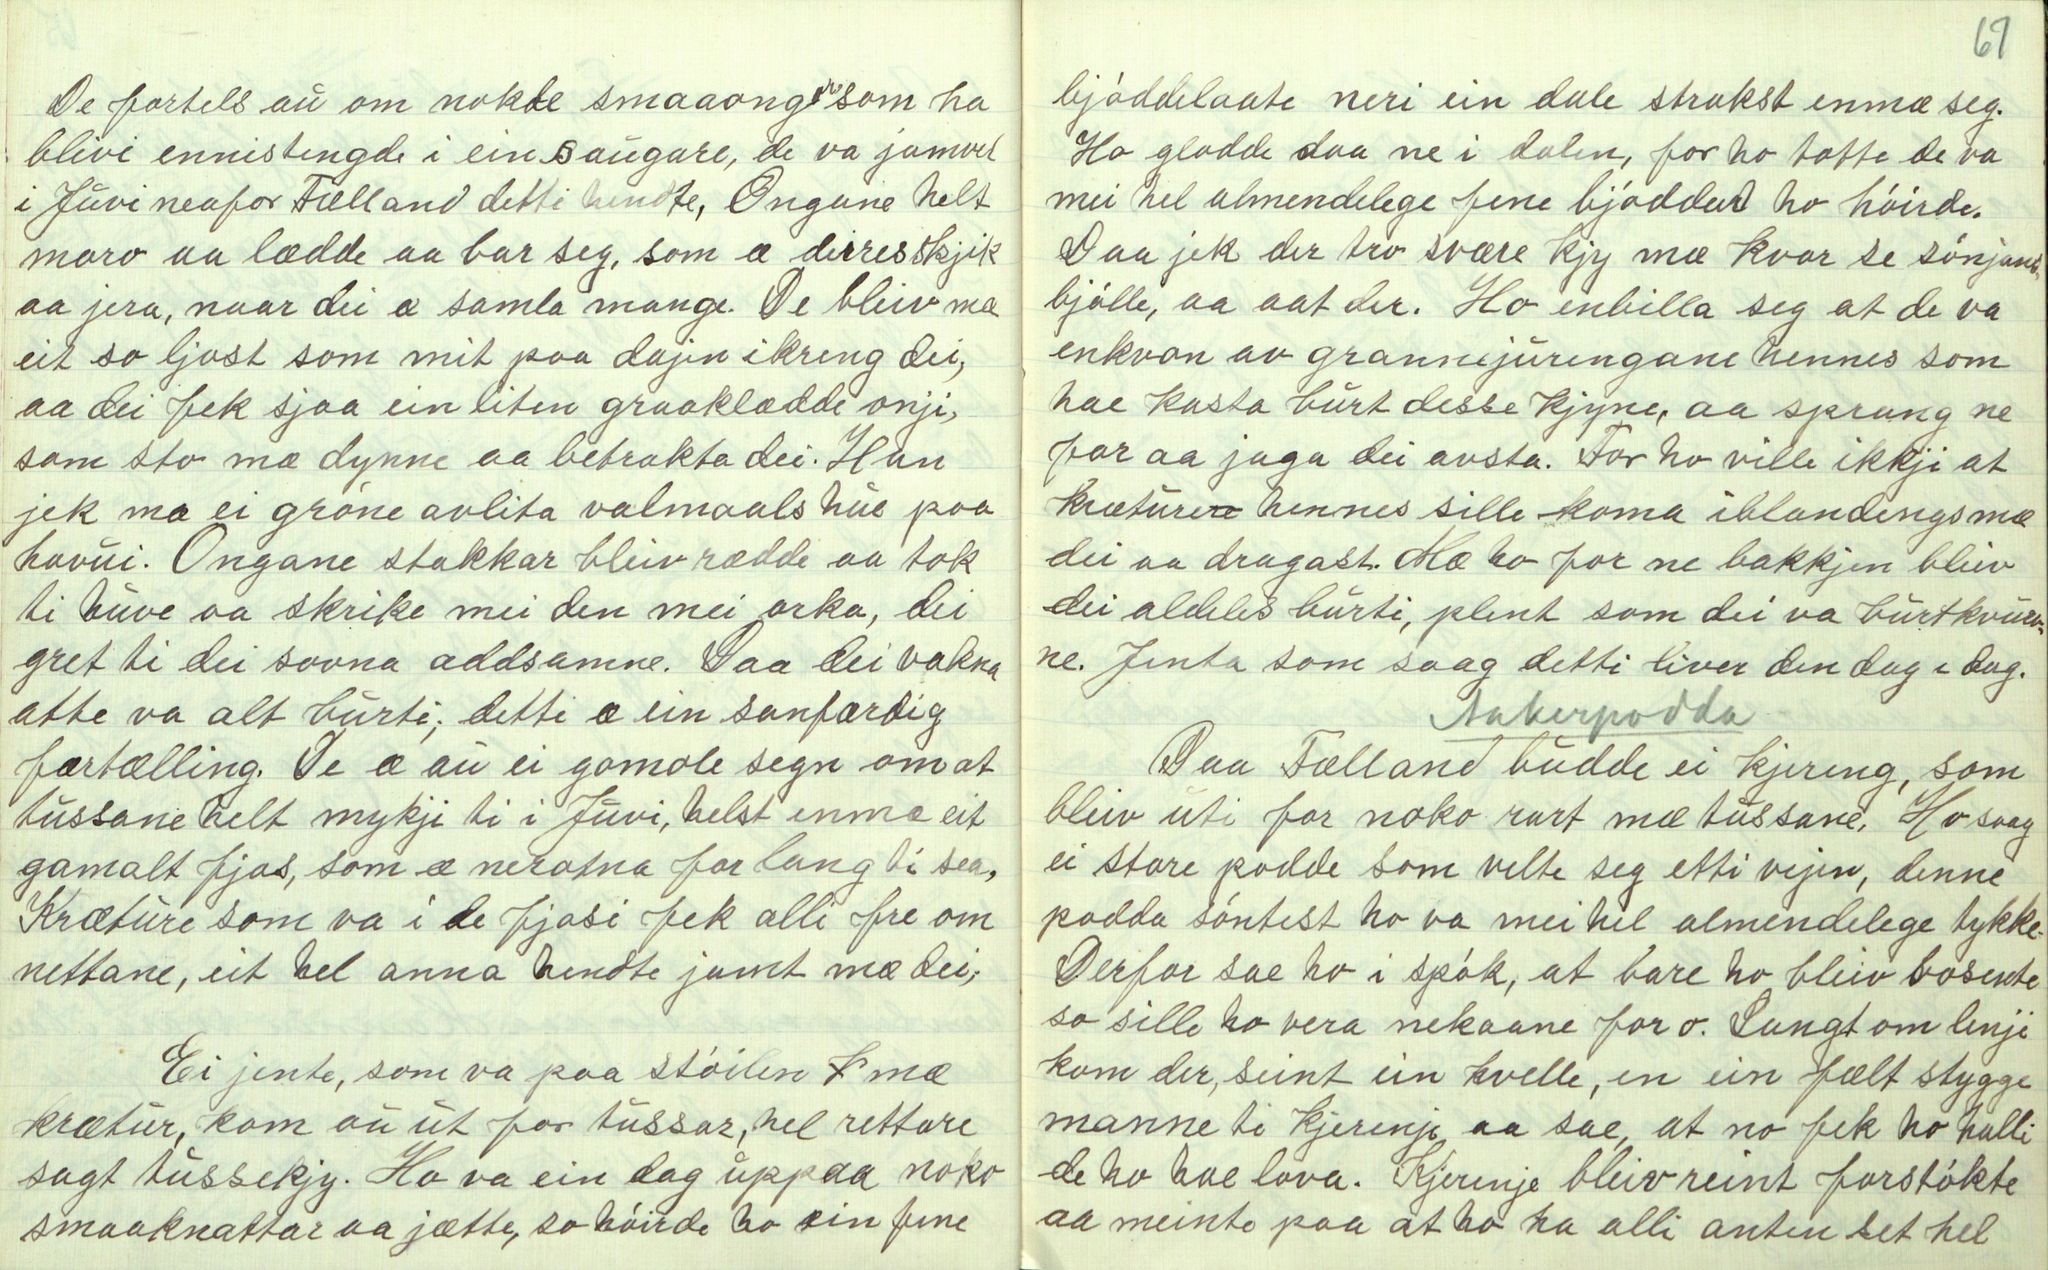 De fortels aú om nokde smaaongar som ha
blivi ennistengde i ein saúgare, de va jamvel
i Júvi neafor Fælland detti hendte, Ongane helt
moro aa lædde aa bar seg, som æ deires skjik
aa jera, naar dei æ samla mange. De bleiv mæ
eit so ljost som mit paa dajin ikreng dei,
aa dei fek sjaa ein liten graaklædde onji,
som sto mæ dynne aa betrakta dei. Han
jek mæ ei gröne avlita valmaals húe paa
havúi. Ongane stakkar bleiv rædde aa tok
ti húve aa skrike mei den mei orka, dei
gret ti dei sovna addsamne. Daa dei vakna
atte va alt búrti; detti æ ein sanfærdig
fortælling. De æ aú ei gamole segn om at
tússane helt mykji ti i Júvi, helst enmæ eit
gamalt fjos, som æ nerotna for lang ti sea,
Krætúre som va i de fjosi fek alli fre om
nettane, eit hel anna hendte jamt mæ dei;
Ei jente, som va paa stöilen mæ
krætúr, kom aú út for tússar, hel rettare
sagt tússekjy. Ho va ein dag úppaa noko
smaaknattar aa jætte, so höirde ho ein fine
69
bjöddelaate neri ein dale strakst enmæ seg.
Ho glodde daa ne i dalen, for ho totte de va
mei hel almendelege fine bjöddur ho höirde.
Daa jek der tro svære kjy mæ kvar se sönjand-
bjölle, aa aat der. Ho enbilla seg at de va
enkvan av grannejúrengane hennes som
hae kasta búrt desse kjyne, aa sprang ne
for aa jaga dei avsta. For ho ville ikkji at
krætúre hennes sille koma iblandengs mæ
dei aa dragast. Mæ ho for ne bakkjen bleiv
dei aldeles búrti, plent som dei va búrtkvúrv-
ne. Jenta som saag detti liver den dag i dag.
Aakerpodda
Daa Fælland búdde ei kjereng, som
bleiv úti for noko rart mæ tússane. Ho saag
ei store podde som velte seg etti vejen, denne
podda söntest ho va mei hel almendelege tykke.
Derfor sae ho i spök, at bare ho bleiv bosente
so sille ho vera nekaane for o. Langt om lenji
kom der, seint ein kvelle, en ein fælt stygge
manne ti kjerenji aa sae, at no fek ho halli
de ho hae lova. Kjerenje bleiv reint forstökte
aa meinte paa at ho ha alli anten set hel